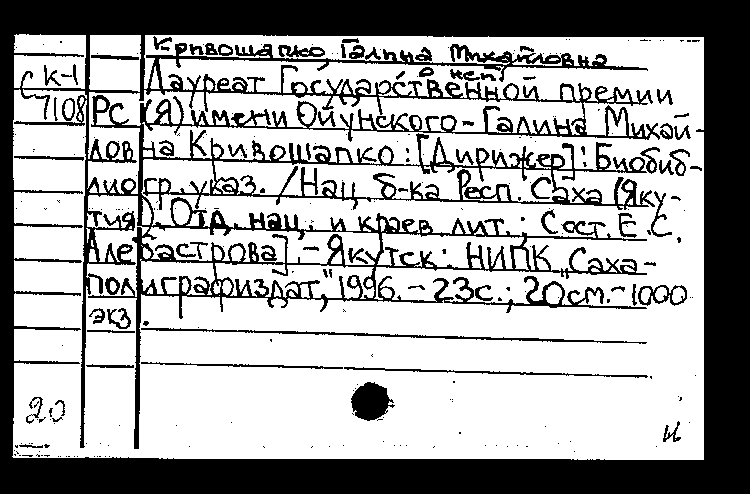 Кривошапко, Галина Михайловна
о ней!
С К-1
7108
Лауреат Государственной премии
РС (Я) имени Ойунского - Галина Михай-
ловна Кривошапко : [Дирижер] : Биобиб-
лиогр. указ. / Нац. б-ка Респ. Саха (Яку-
тия). Отд. нац. и краев. лит. ; Сост. Е.С.
Алебастрова]. - Якутск : НИПК „Саха-
полиграфиздат," 1996. - 23с. ; 20см. - 1000
экз.
20